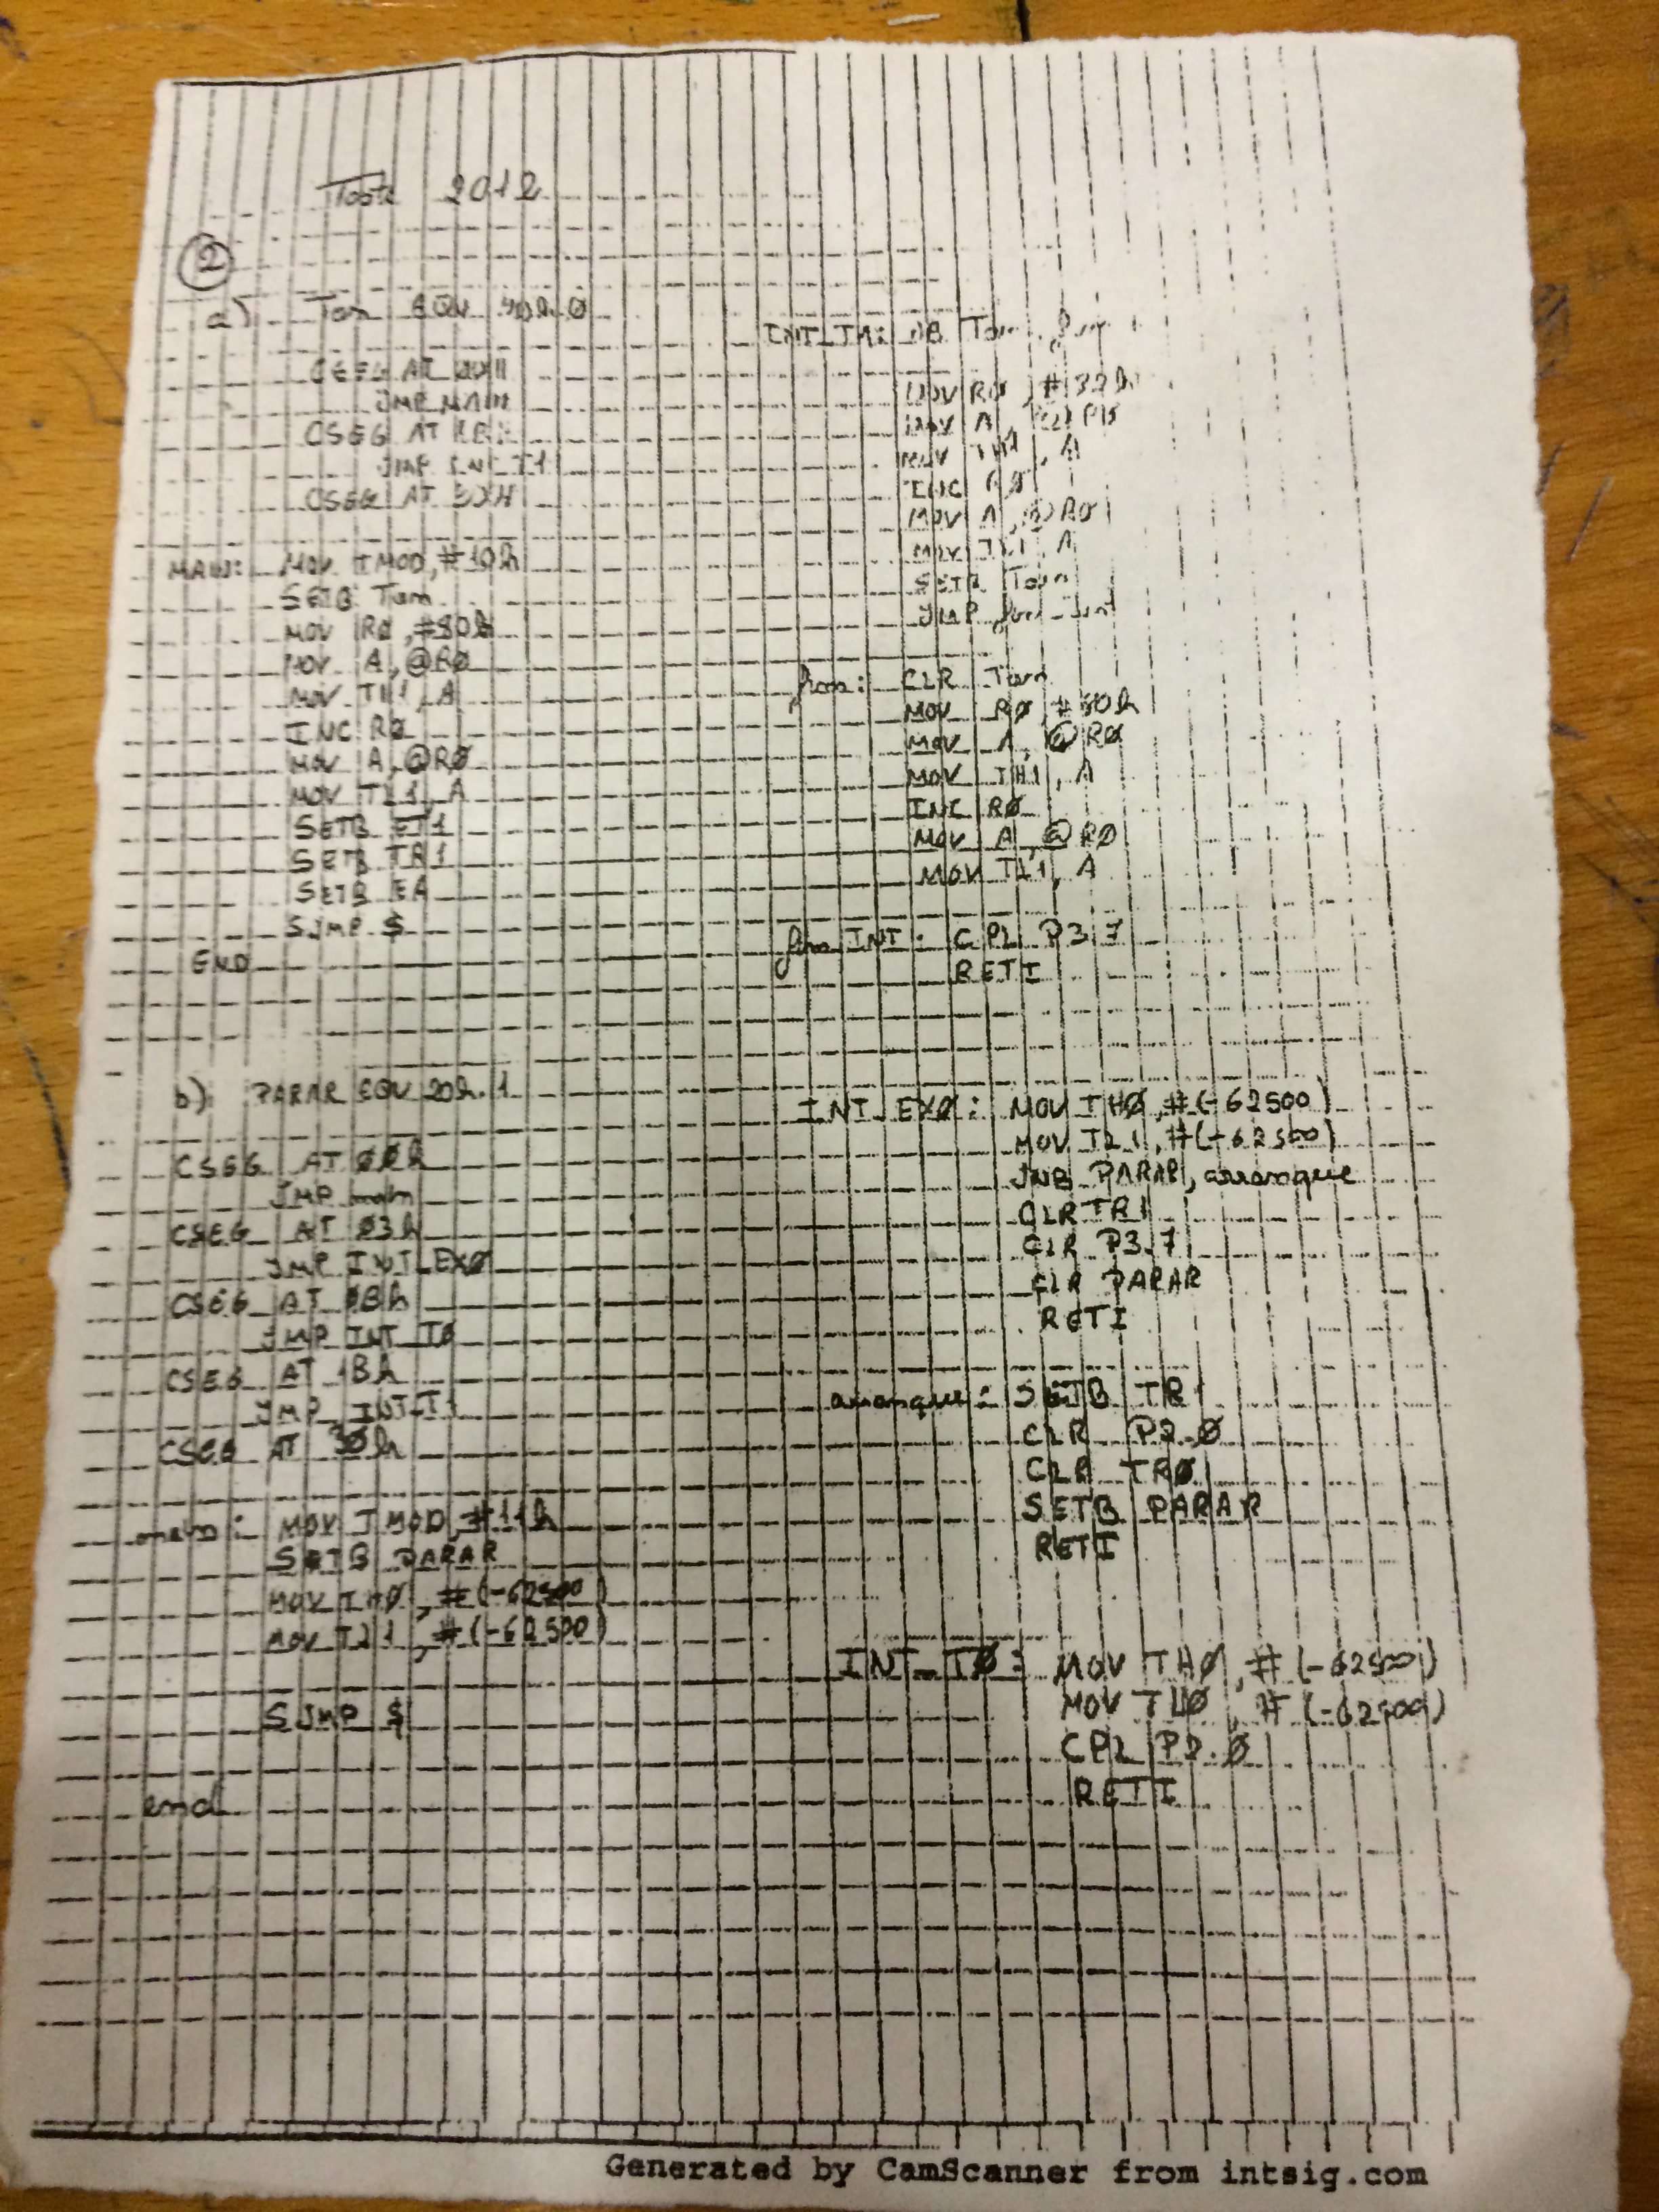 Teste 2012
2
a) Ton EQU 20h.0
CSEG AT 00H
JMP MAIN
CSEG AT 1BH
JMP INT_T1
CSEG AT 30H
MAIN: MOV TMOD,#10h
SETB Ton
MOV R0,#30h
MOV A,@R0
MOV TH1,A
INC R0
MOV A,@R0
MOV TL1,A
SETB ET1
SETB TR1
SETB EA
SJMP $
END
JNB Ton,
MOV R0,#32h
MOV A,@R0
MOV TH1,A
INC R0
MOV A,@R0
MOV TL1,A
SETB Ton
JMP fim_int
CLR Ton
MOV R0,#30h
MOV A,@R0
MOV TH1,A
INC R0
MOV A,@R0
MOV TL1,A
fim_INT: CPL P3.7
RETI
b) PARAR EQU 20h.1
CSEG AT 00h
JMP main
CSEG AT 03h
JMP INT_EX0
CSEG AT 0Bh
JMP INT_T0
CSEG AT 1Bh
JMP INT_T1
CSEG AT 30h
main: MOV TMOD,#11h
SETB PARAR
MOV TH0,#(-62500)
MOV TL1,#(-62500)
SJMP $
end
INT_EX0: MOV TH0,#(-62500)
MOV TL1,#(-62500)
JNB PARAR,arranque
CLR TR1
CLR P3.7
CLR PARAR
RETI
arranque: SETB TR1
CLR P2.0
CLR TR0
SETB PARAR
RETI
INT_T0: MOV TH0,#(-62500)
MOV TL0,#(-62500)
CPL P2.0
RETI
Generated by CamScanner from intsig.com